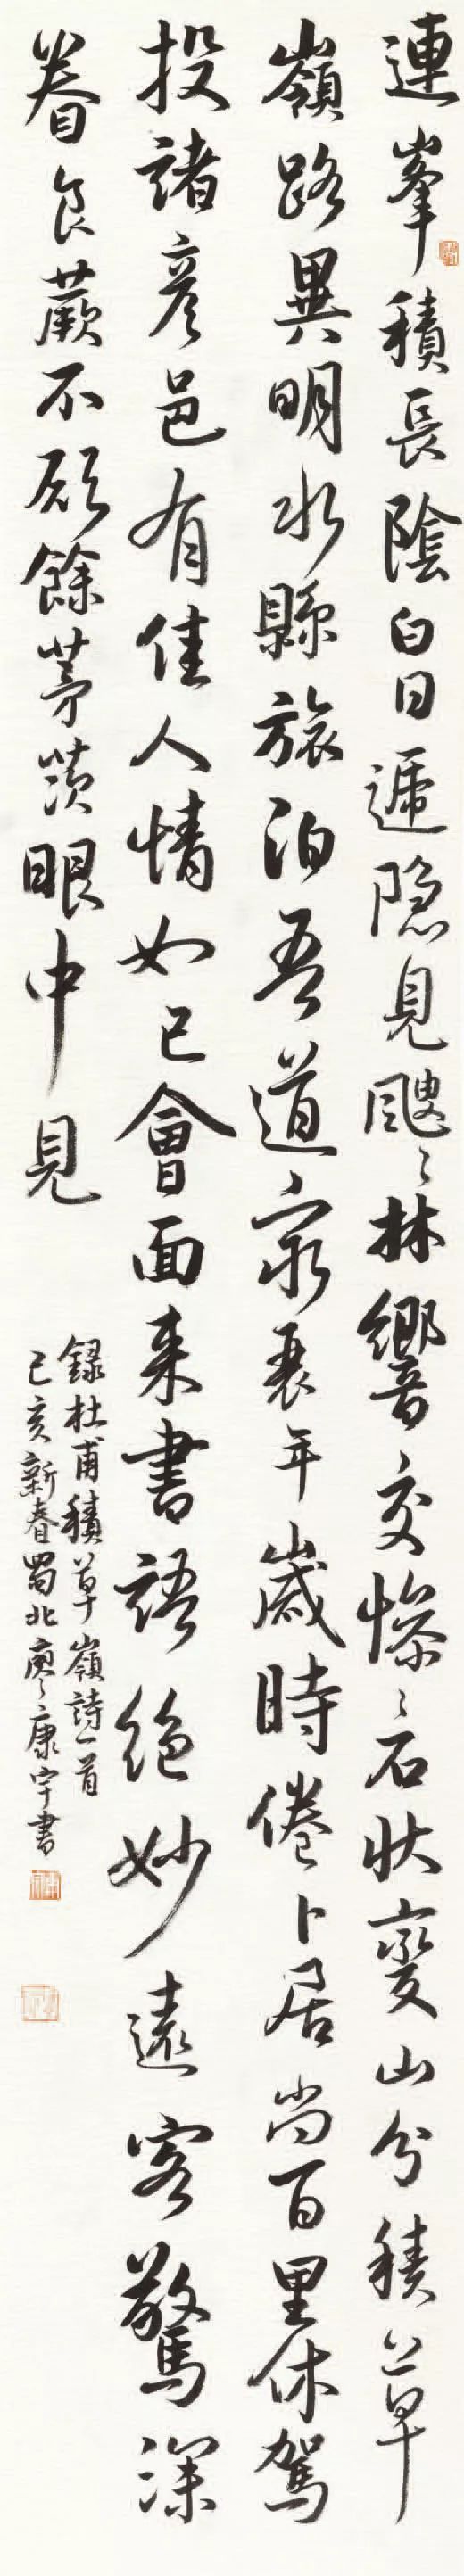 連峯積長陰白日遞隐見颼〻林響交慘〻石狀變山分積草
嶺路異明水縣旅泊吾道窮衰年歲時倦卜居尚百里休駕
投諸彦邑有佳人情如已會面来書語絶妙遠客驚深
眷食蕨不願餘茅茨眼中見
録杜甫積草嶺詩一首
己亥新春蜀北廖康宇書